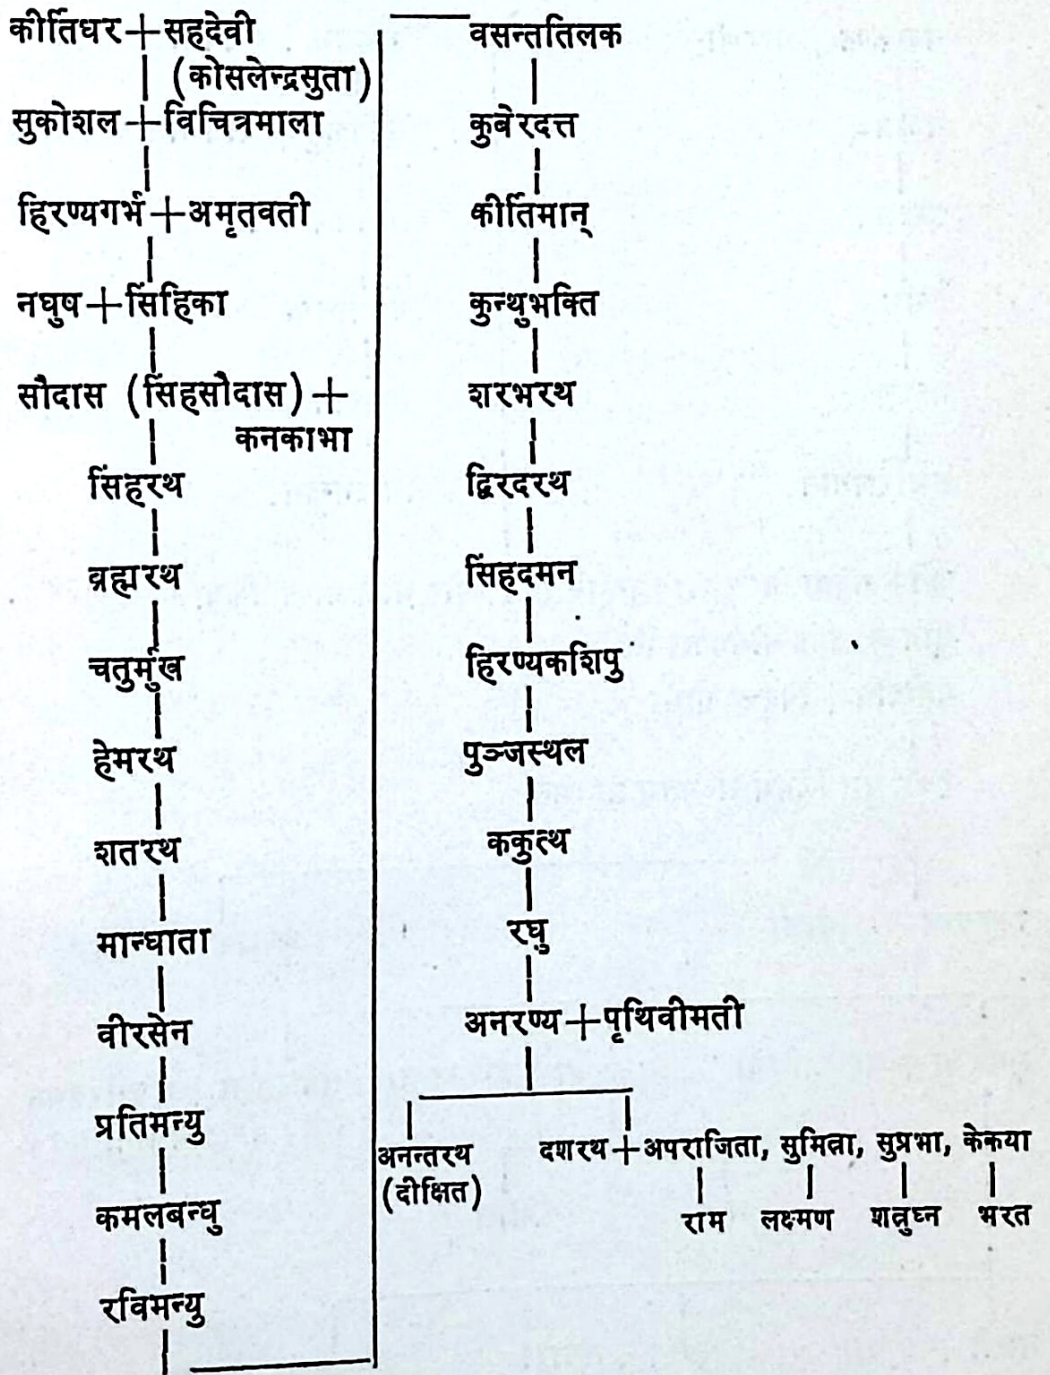 कीर्तिधर+सहदेवी
(कोसलेन्द्रसुता)
सुकोशल+विचित्रमाला
हिरण्यगर्भ+अमृतवती
नघुष+सिंहिका
सौदास (सिंहसौदास)+
कनकाभा
सिंहरथ
ब्रह्मरथ
चतुर्मुख
हेमरथ
शतरथ
मान्धाता
वीरसेन
प्रतिमन्यु
कमलबन्धु
रविमन्यु
वसन्ततिलक
कुबेरदत्त
कीर्तिमान्
कुन्थुभक्ति
शरभरथ
द्विरदरथ
सिंहदमन
हिरण्यकशिपु
पुञ्जस्थल
ककुत्थ
रघु
अनरण्य+पृथिवीमती
अनन्तरथ
(दीक्षित)
दशरथ+अपराजिता, सुमित्रा, सुप्रभा, केकया
राम लक्ष्मण शत्रुघ्न भरत